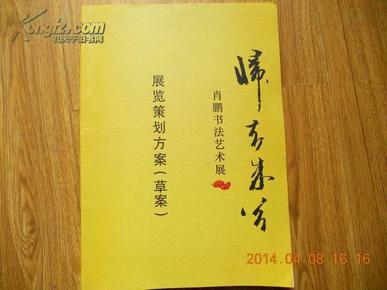 歸去来兮
肖鹏书法艺术展
展览策划方案（草案）
孔夫子旧书网
2014.04.08 16 16